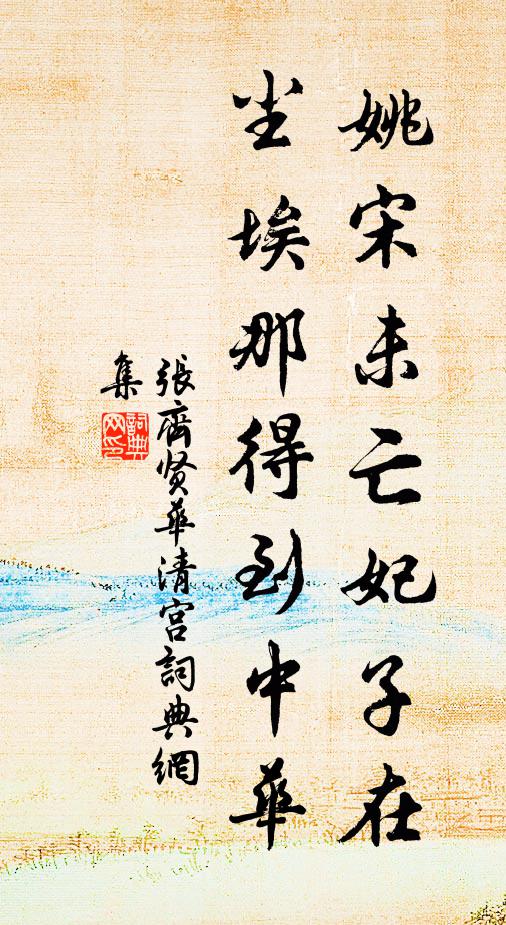 姚宋未亡妃子在
尘埃那得到中华
張齊贤華清宫詞典網
集
詞典
网印